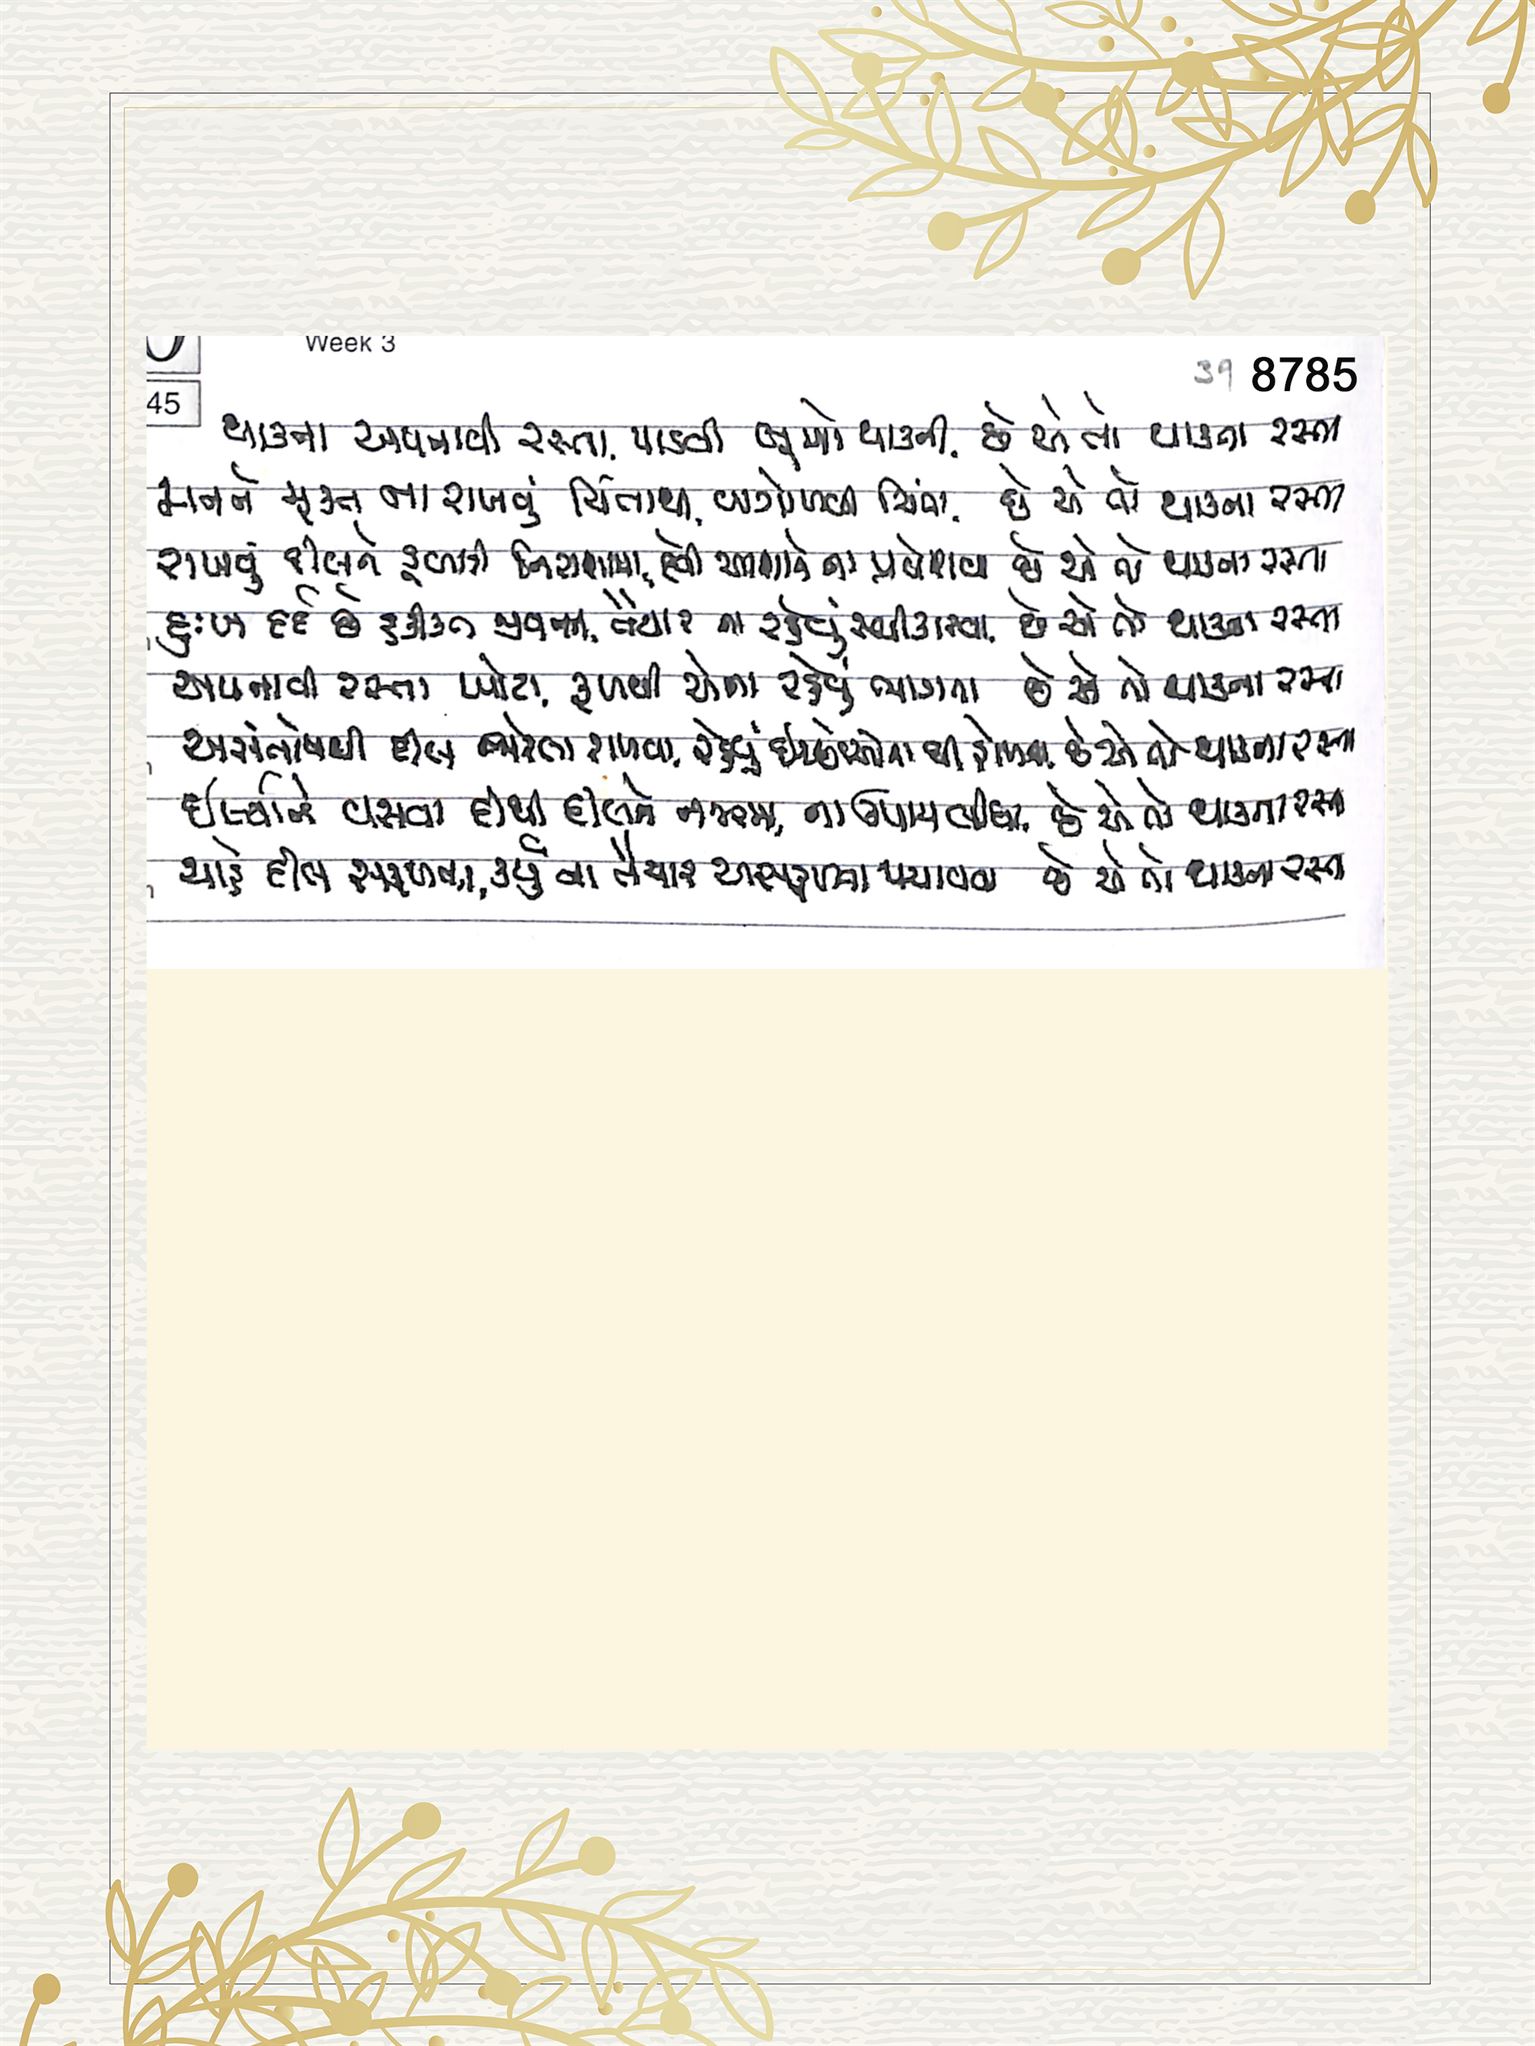 Week 3
45
39 8785
થાકના અપનાવી રસ્તા, પાડવી બૂમો થાકની, છે એ તો થાકના રસ્તા
મનને મુક્ત ના રાખવું ચિંતાથી, વાગોળવી ચિંતા, છે એ તો થાકના રસ્તા
રાખવું દીલને ડૂબાડી નિરાશામા, દેવી આશાને ના પ્રવેશવા છે એ તો થાકના રસ્તા
દુઃખ દર્દ છે હકીકત જીવનમા, તૈયાર ના રહેવું સ્વીકારવા, છે એ તો થાકના રસ્તા
અપનાવી રસ્તા ખોટા, ફળથી એના રહેવું ભાગતા છે એ તો થાકના રસ્તા
અસંતોષથી દીલ ભરેલા રાખવા, રહેવું ઈચ્છાઓના થી છે એ તો થાકના રસ્તા
ઈર્ષ્યાને વસવા દીધી દીલને નજરમા, ના ઉપાય લીધા, છે એ તો થાકના રસ્તા
ચાહે દીલ સફળતા, કર્યું ના તૈયાર અસફળતા પચાવવા છે એ તો થાકના રસ્તા